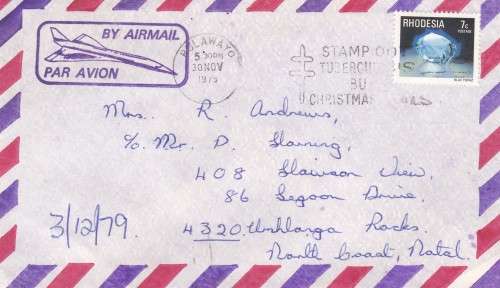 BY AIRMAIL
PAR AVION
BULAWAYO
5 30PM
30 NOV
1979
STAMP OUT
TUBERCULOSIS
BUY
CHRISTMAS SEALS
RHODESIA
7c
POSTAGE
BLUE TOPAZ
Mrs. R. Andrews,
c/o. Mr. D.
408 View,
86 Lagoon Drive,
3/12/79.
4320 Umhlanga Rocks.
North Coast, Natal.